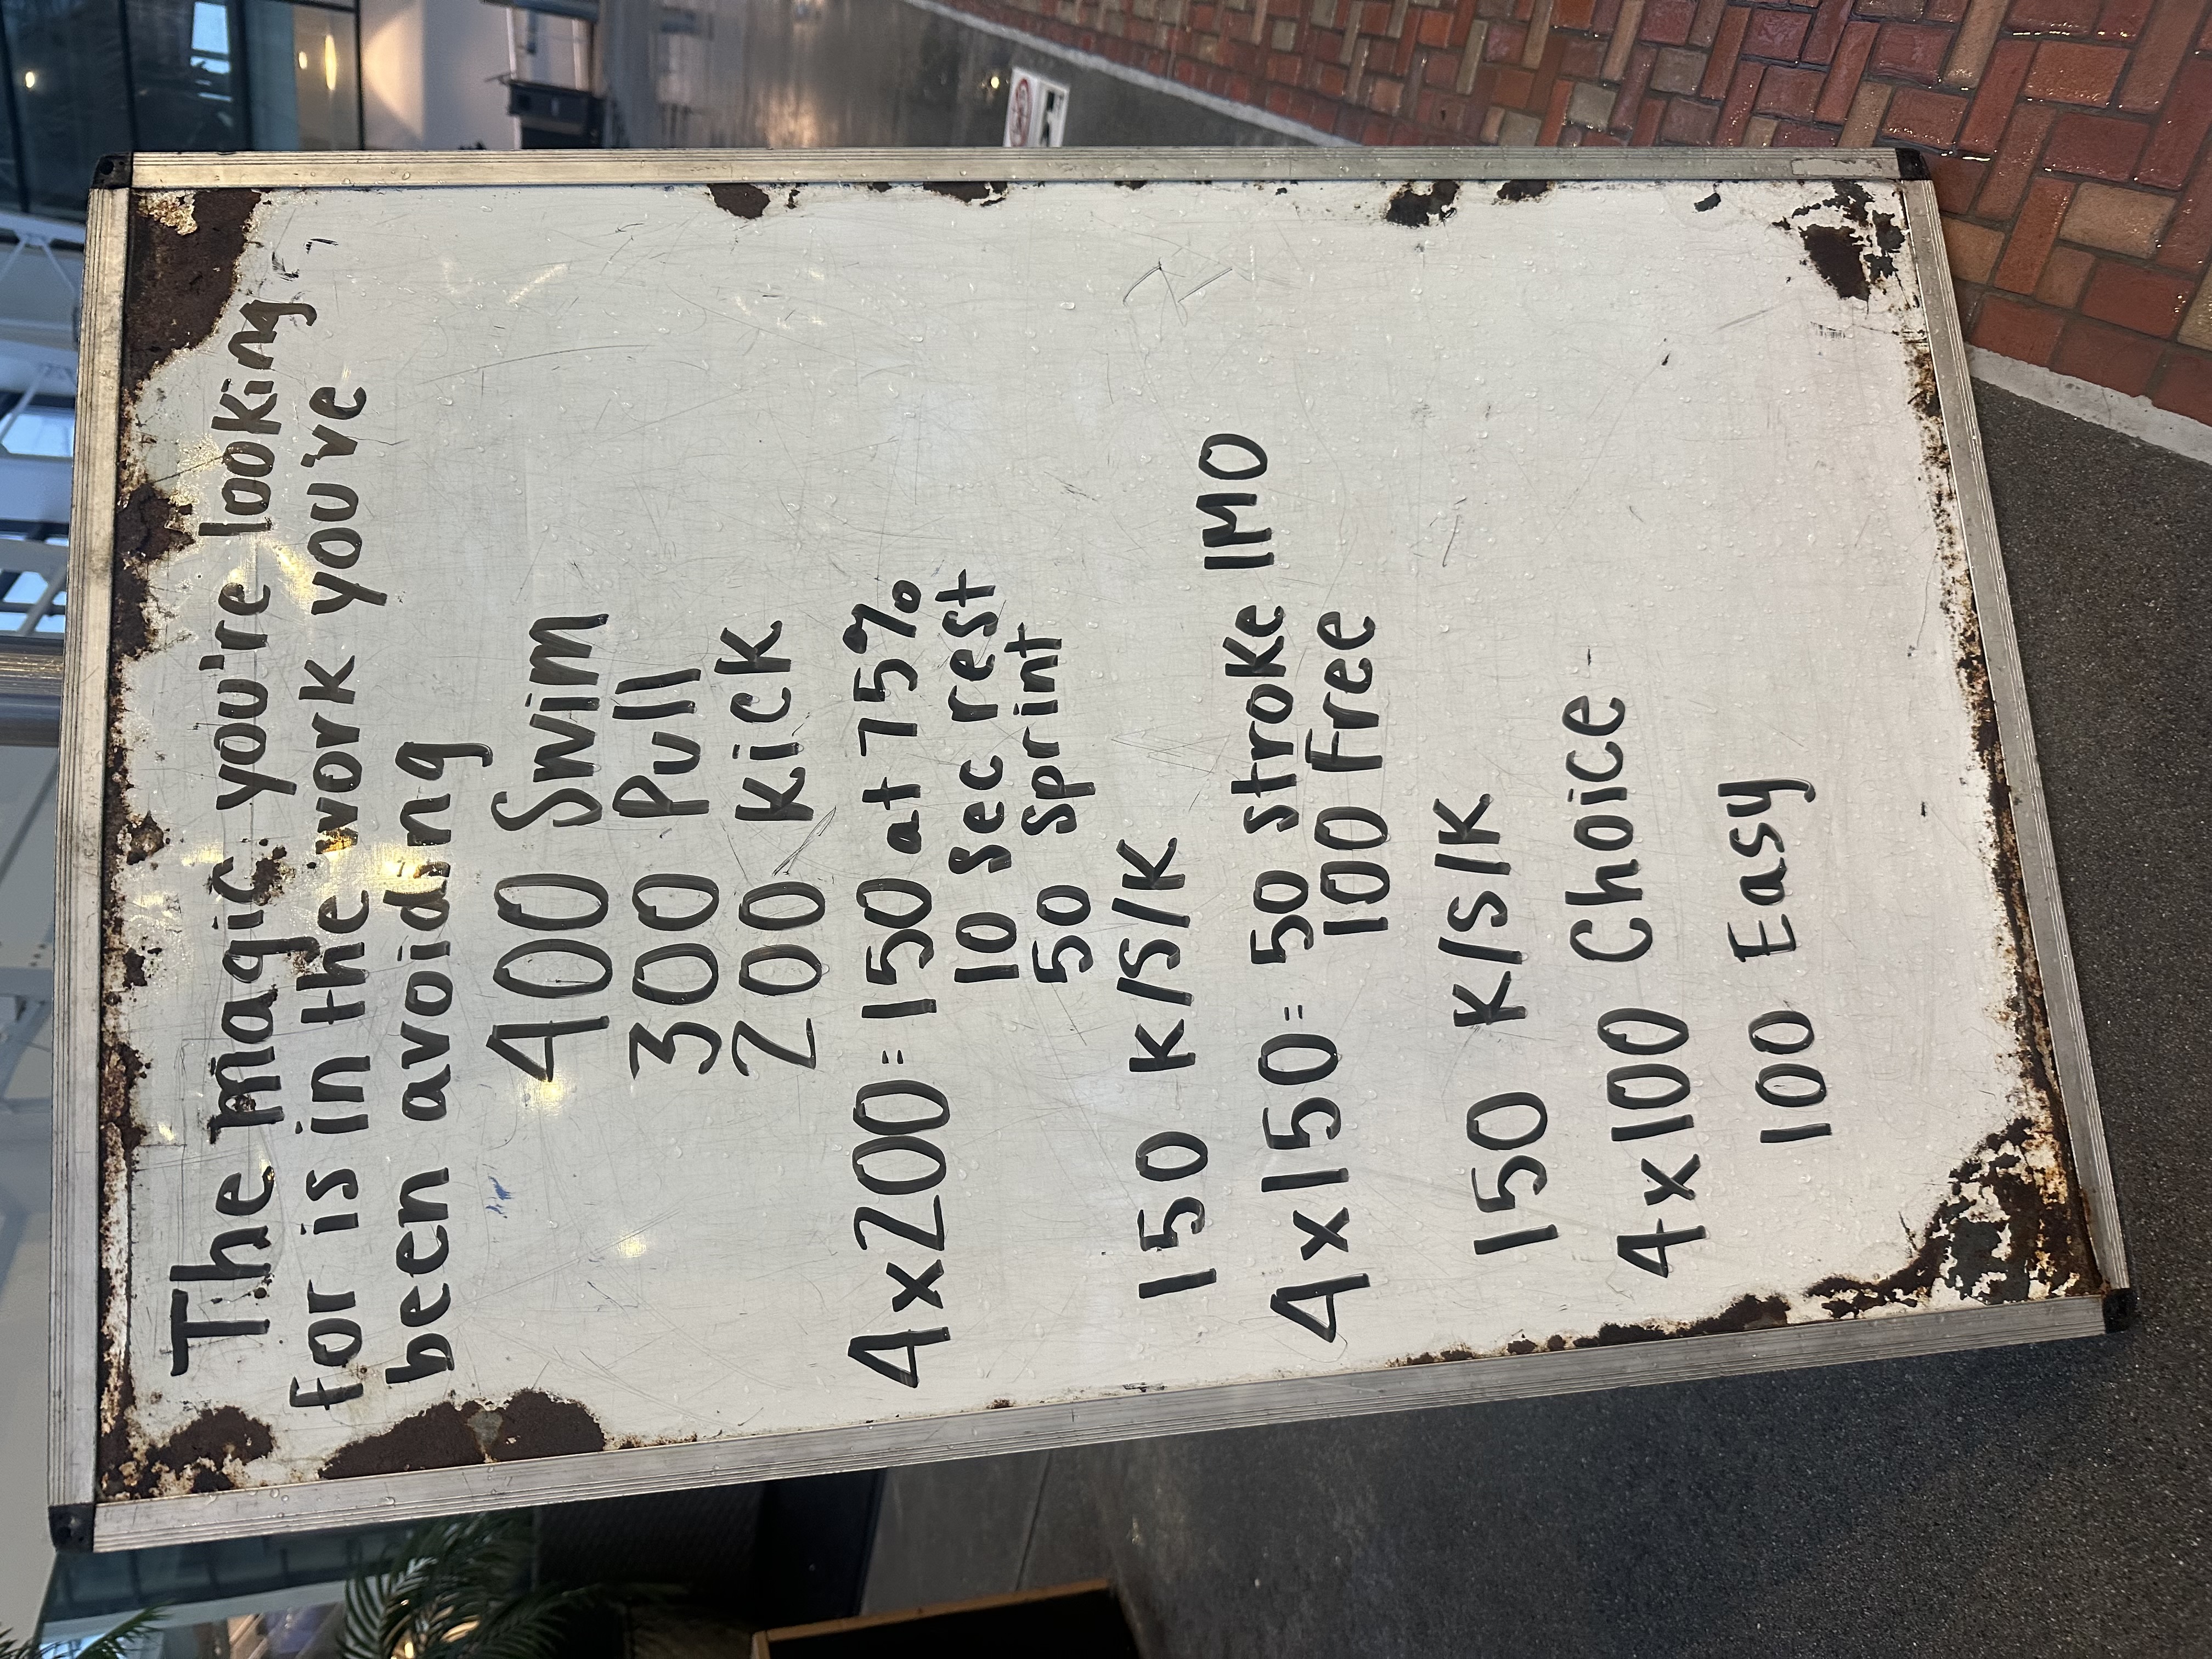 The magic you're looking
for is in the work you've
been avoiding
400 Swim
300 Pull
200 Kick
4x200= 150 at 75%
10 Sec rest
50 Sprint
150 K/S/K
4x150= 50 stroke IMO
100 Free
150 K/S/K
4x100 Choice
100 Easy